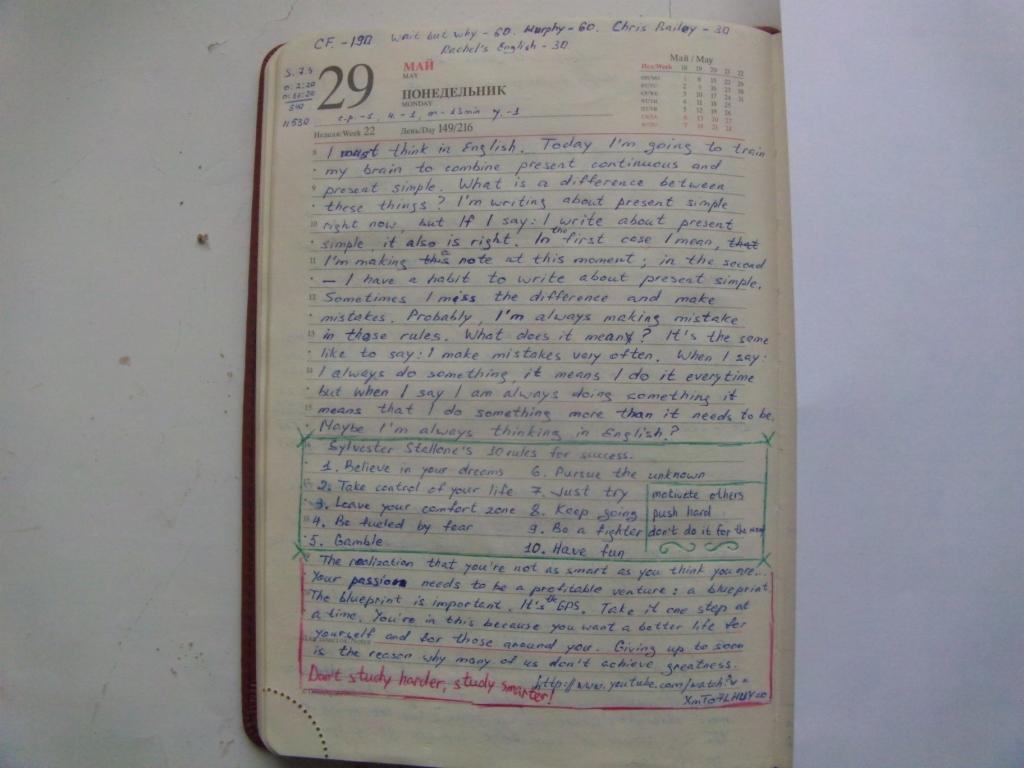 CF. - 190 Wait but why - 60. Murphy - 60. Chris Bailey - 30
Rachel's English - 30
29
МАЙ
MAY
ПОНЕДЕЛЬНИК
MONDAY
Неделя/Week 22 День/Day 149/216
Май / May
Нед/Week 18 19 20 21 22
I must think in English. Today I'm going to train
my brain to combine present continuous and
present simple. What is a difference between
these things? I'm writing about present simple
right now, but If I say: I write about present
simple, it also is right. In the first case I mean, that
I'm making a note at this moment; in the second
— I have a habit to write about present simple.
Sometimes I miss the difference and make
mistakes. Probably, I'm always making mistake
in those rules. What does it mean? It's the same
like to say: I make mistakes very often. When I say:
I always do something, it means I do it everytime
but when I say I am always doing something it
means that I do something more than it needs to be.
Maybe I'm always thinking in English?
Sylvester Stallone's 10 rules for success.
1. Believe in your dreams 6. Pursue the unknown
2. Take control of your life 7. Just try motivate others
3. Leave your comfort zone 8. Keep going push hard
4. Be fueled by fear 9. Be a fighter don't do it for the money
5. Gamble 10. Have fun
The realization that you're not as smart as you think you are...
Your passion needs to be a profitable venture: a blueprint
The blueprint is important. It's the GPS. Take it one step at
a time. You're in this because you want a better life for
yourself and for those around you. Giving up to soon
is the reason why many of us don't achieve greatness.
Don't study harder, study smarter! http://www.youtube.com/watch?v=